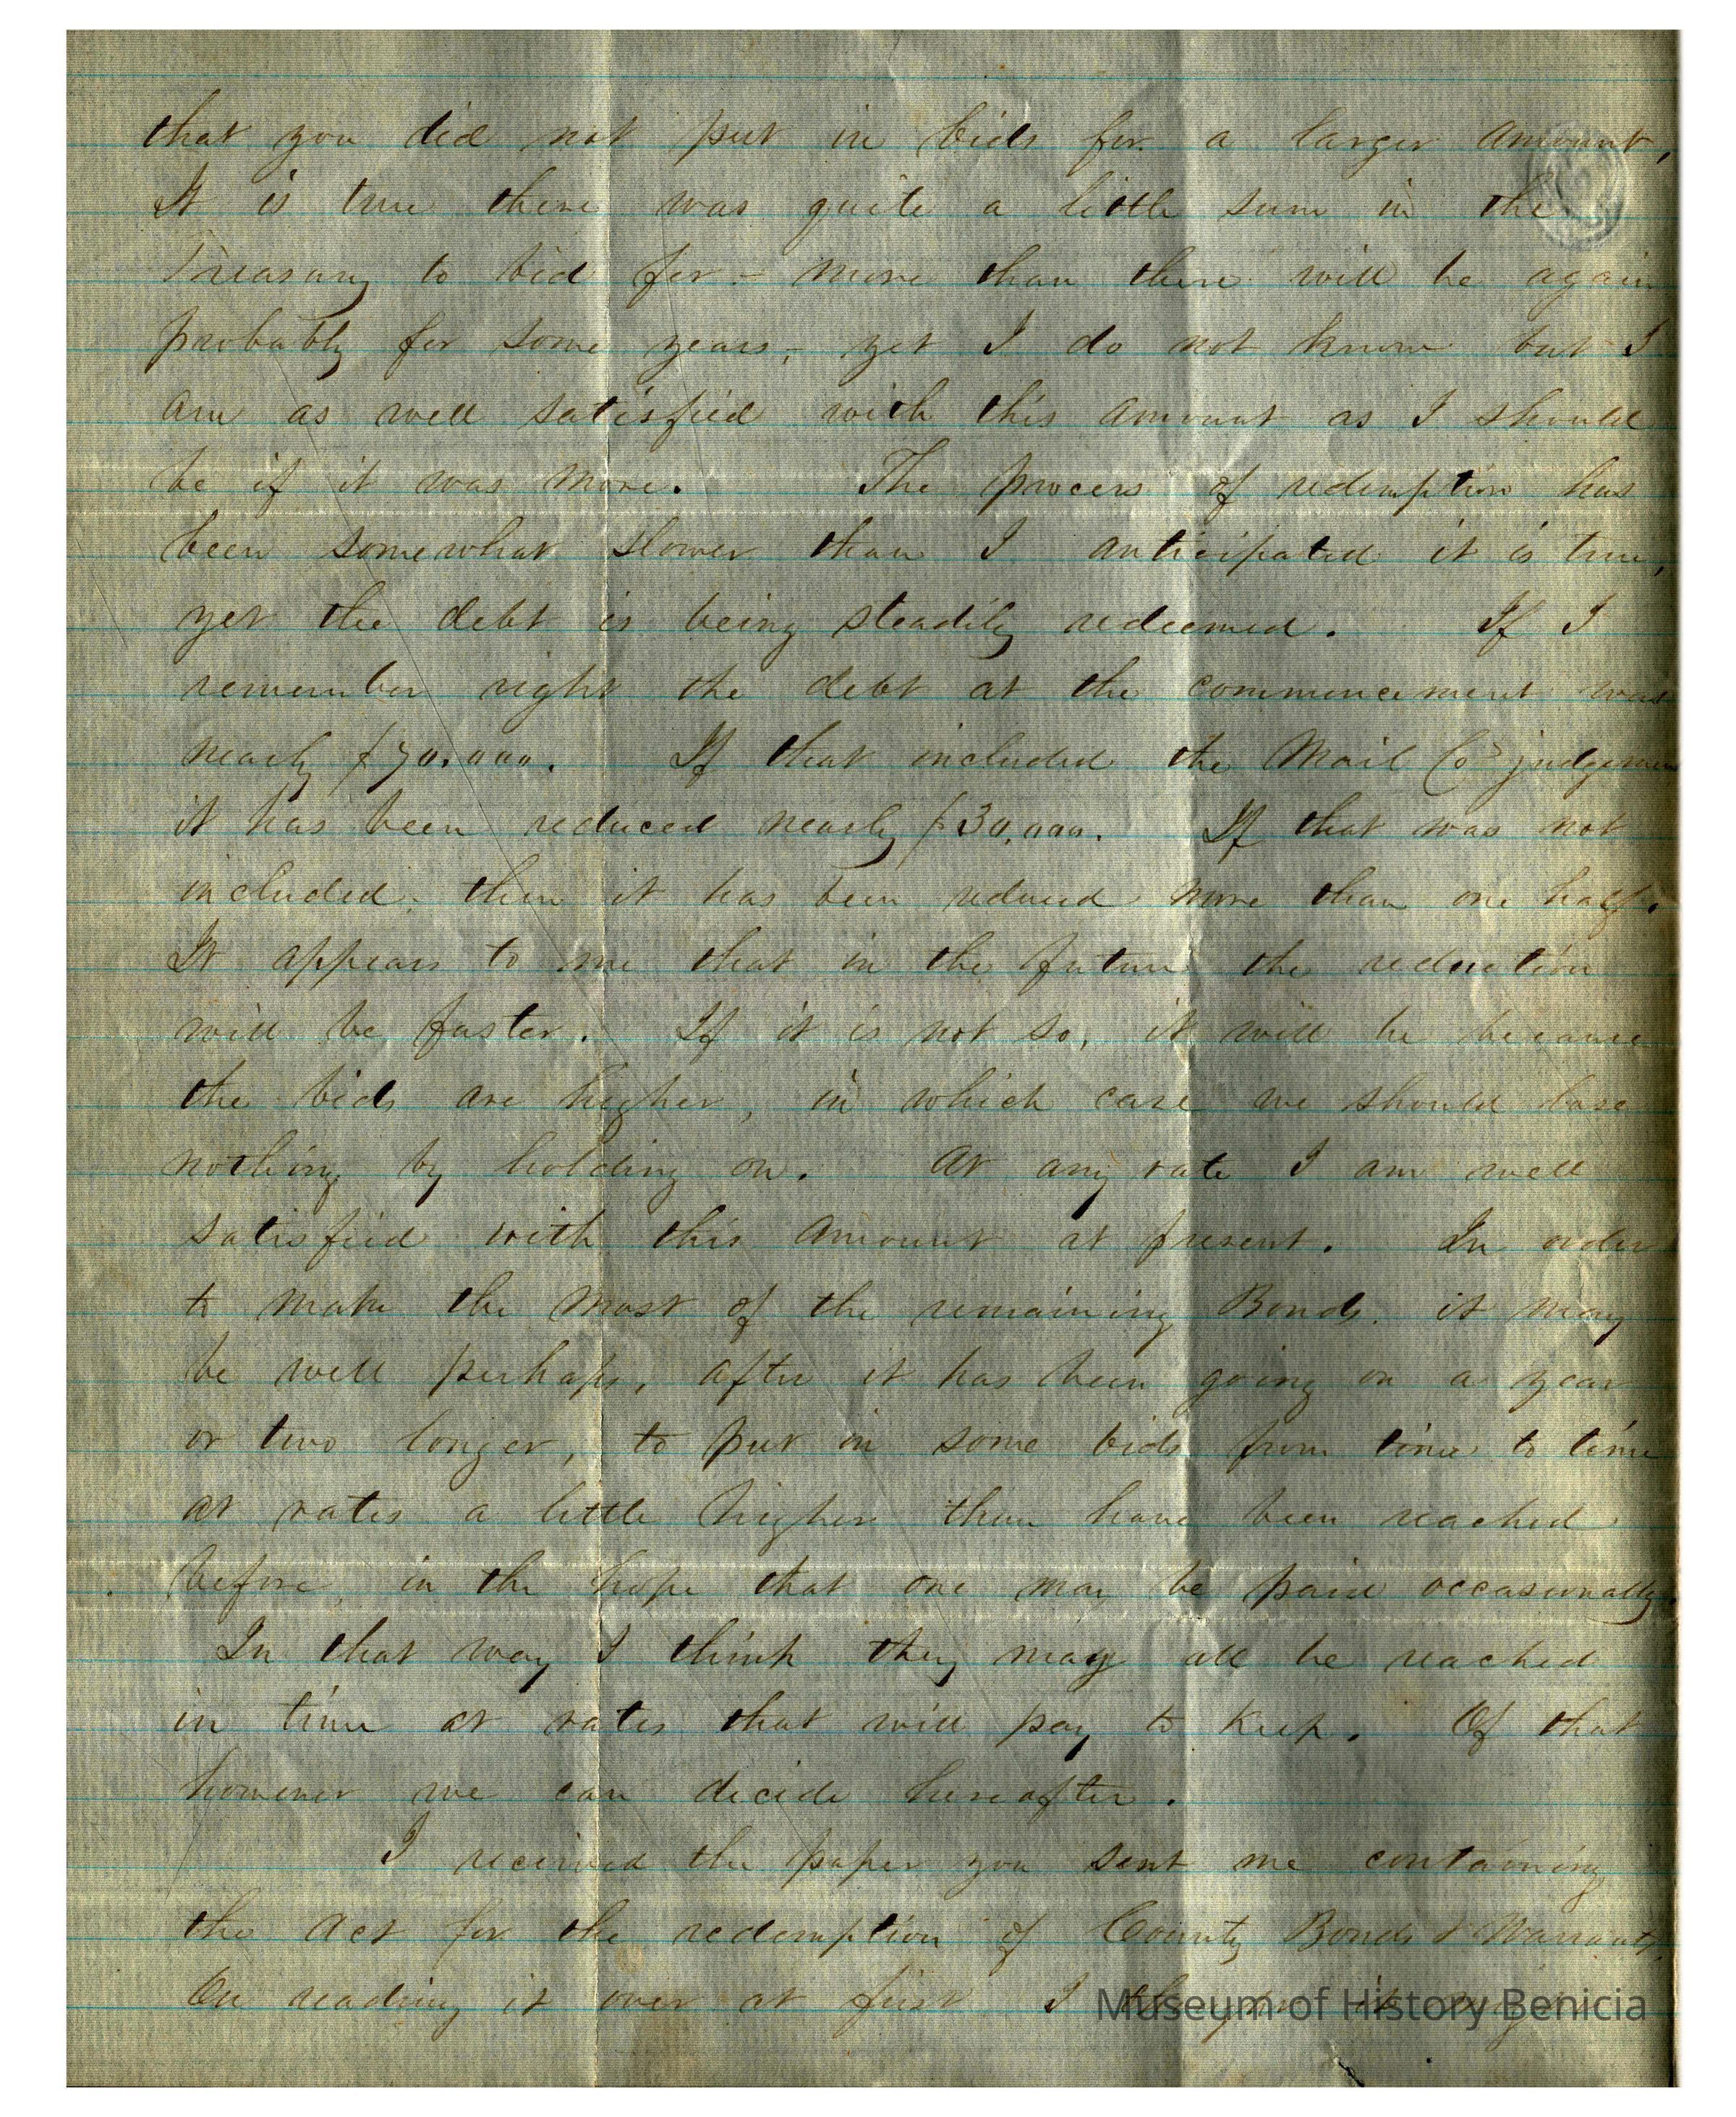 that you did not put in bids for a larger amount,
It is true there was quite a little sum in the
Treasury to bid for - more than there will be again
probably for some years, yet I do not know but I
am as well satisfied with this amount as I should
be if it was more. The process of redemption has
been somewhat slower than I anticipated it is true,
yet the debt is being steadily redeemed. If I
remember right the debt at the commencement was
nearly $70.000. If that included the Mail Co judgemen
it has been reduced nearly $30,000. If that was not
included, then it has been reduced more than one half.
It appears to me that in the future the reduction
will be faster. If it is not so, it will be because
the bids are higher, in which case we should lose
nothing by holding on. At any rate I am well
satisfied with this amount at present. In order
to make the most of the remaining Bonds, it may
be well perhaps, after it has been going on a year
or two longer, to put in some bids from time to time
at rates a little higher than have been reached
before, in the hope that one may be paid occasionally.
In that way I think they may all be reached
in time at rates that will pay to keep. Of that
however we can decide hereafter.
I received the paper you sent me containing
the Act for the redemption of County Bonds & Warrants.
On reading it over at first I
Museum of History Benicia